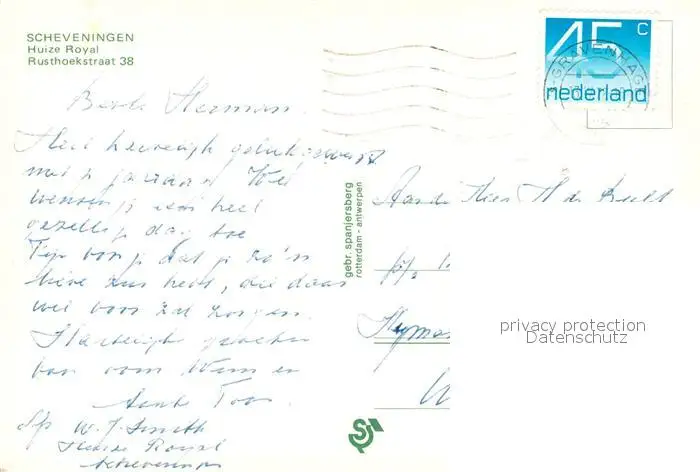 SCHEVENINGEN
Huize Royal
Rusthoekstraat 38
45 c
nederland
'S-GRAVENHAGE
Beste Herman.
Heel hartelijk gefeliciteerd
met je jaardag. Wij
wensen je een heel
gezellige dag toe
Fijn voor je dat je zo'n
lieve zus hebt, die daar
wel voor zal zorgen.
Hartelijke groeten
van oom Wim en
tante Toos.
W. J. Smith
Huize Royal
Scheveningen
gebr. spanjersberg
rotterdam - antwerpen
Aan de Heer H de
p/a
privacy protection
Datenschutz